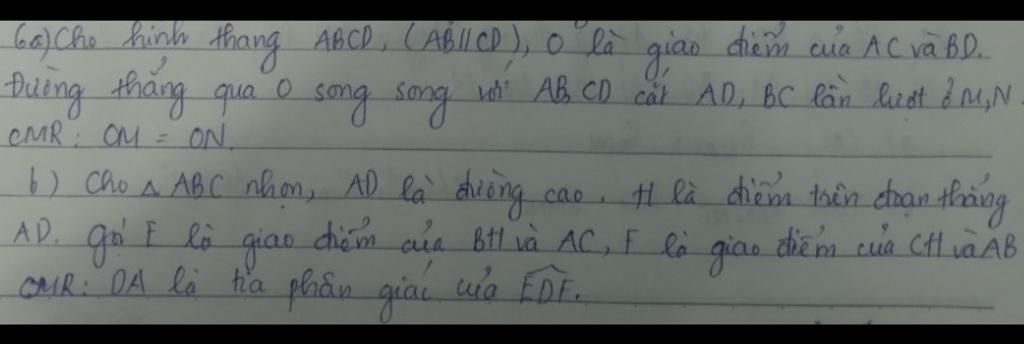 6a) Cho hình thang ABCD, (AB//CD), O là giao điểm của AC và BD.
Đường thẳng qua O song song với AB, CD cắt AD, BC lần lượt ở M, N.
CMR: OM = ON.
b) Cho △ ABC nhọn, AD là đường cao. H là điểm trên đoạn thẳng
AD. gọi E là giao điểm của BH và AC, F là giao điểm của CH và AB
CMR: DA là tia phân giác của EDF.